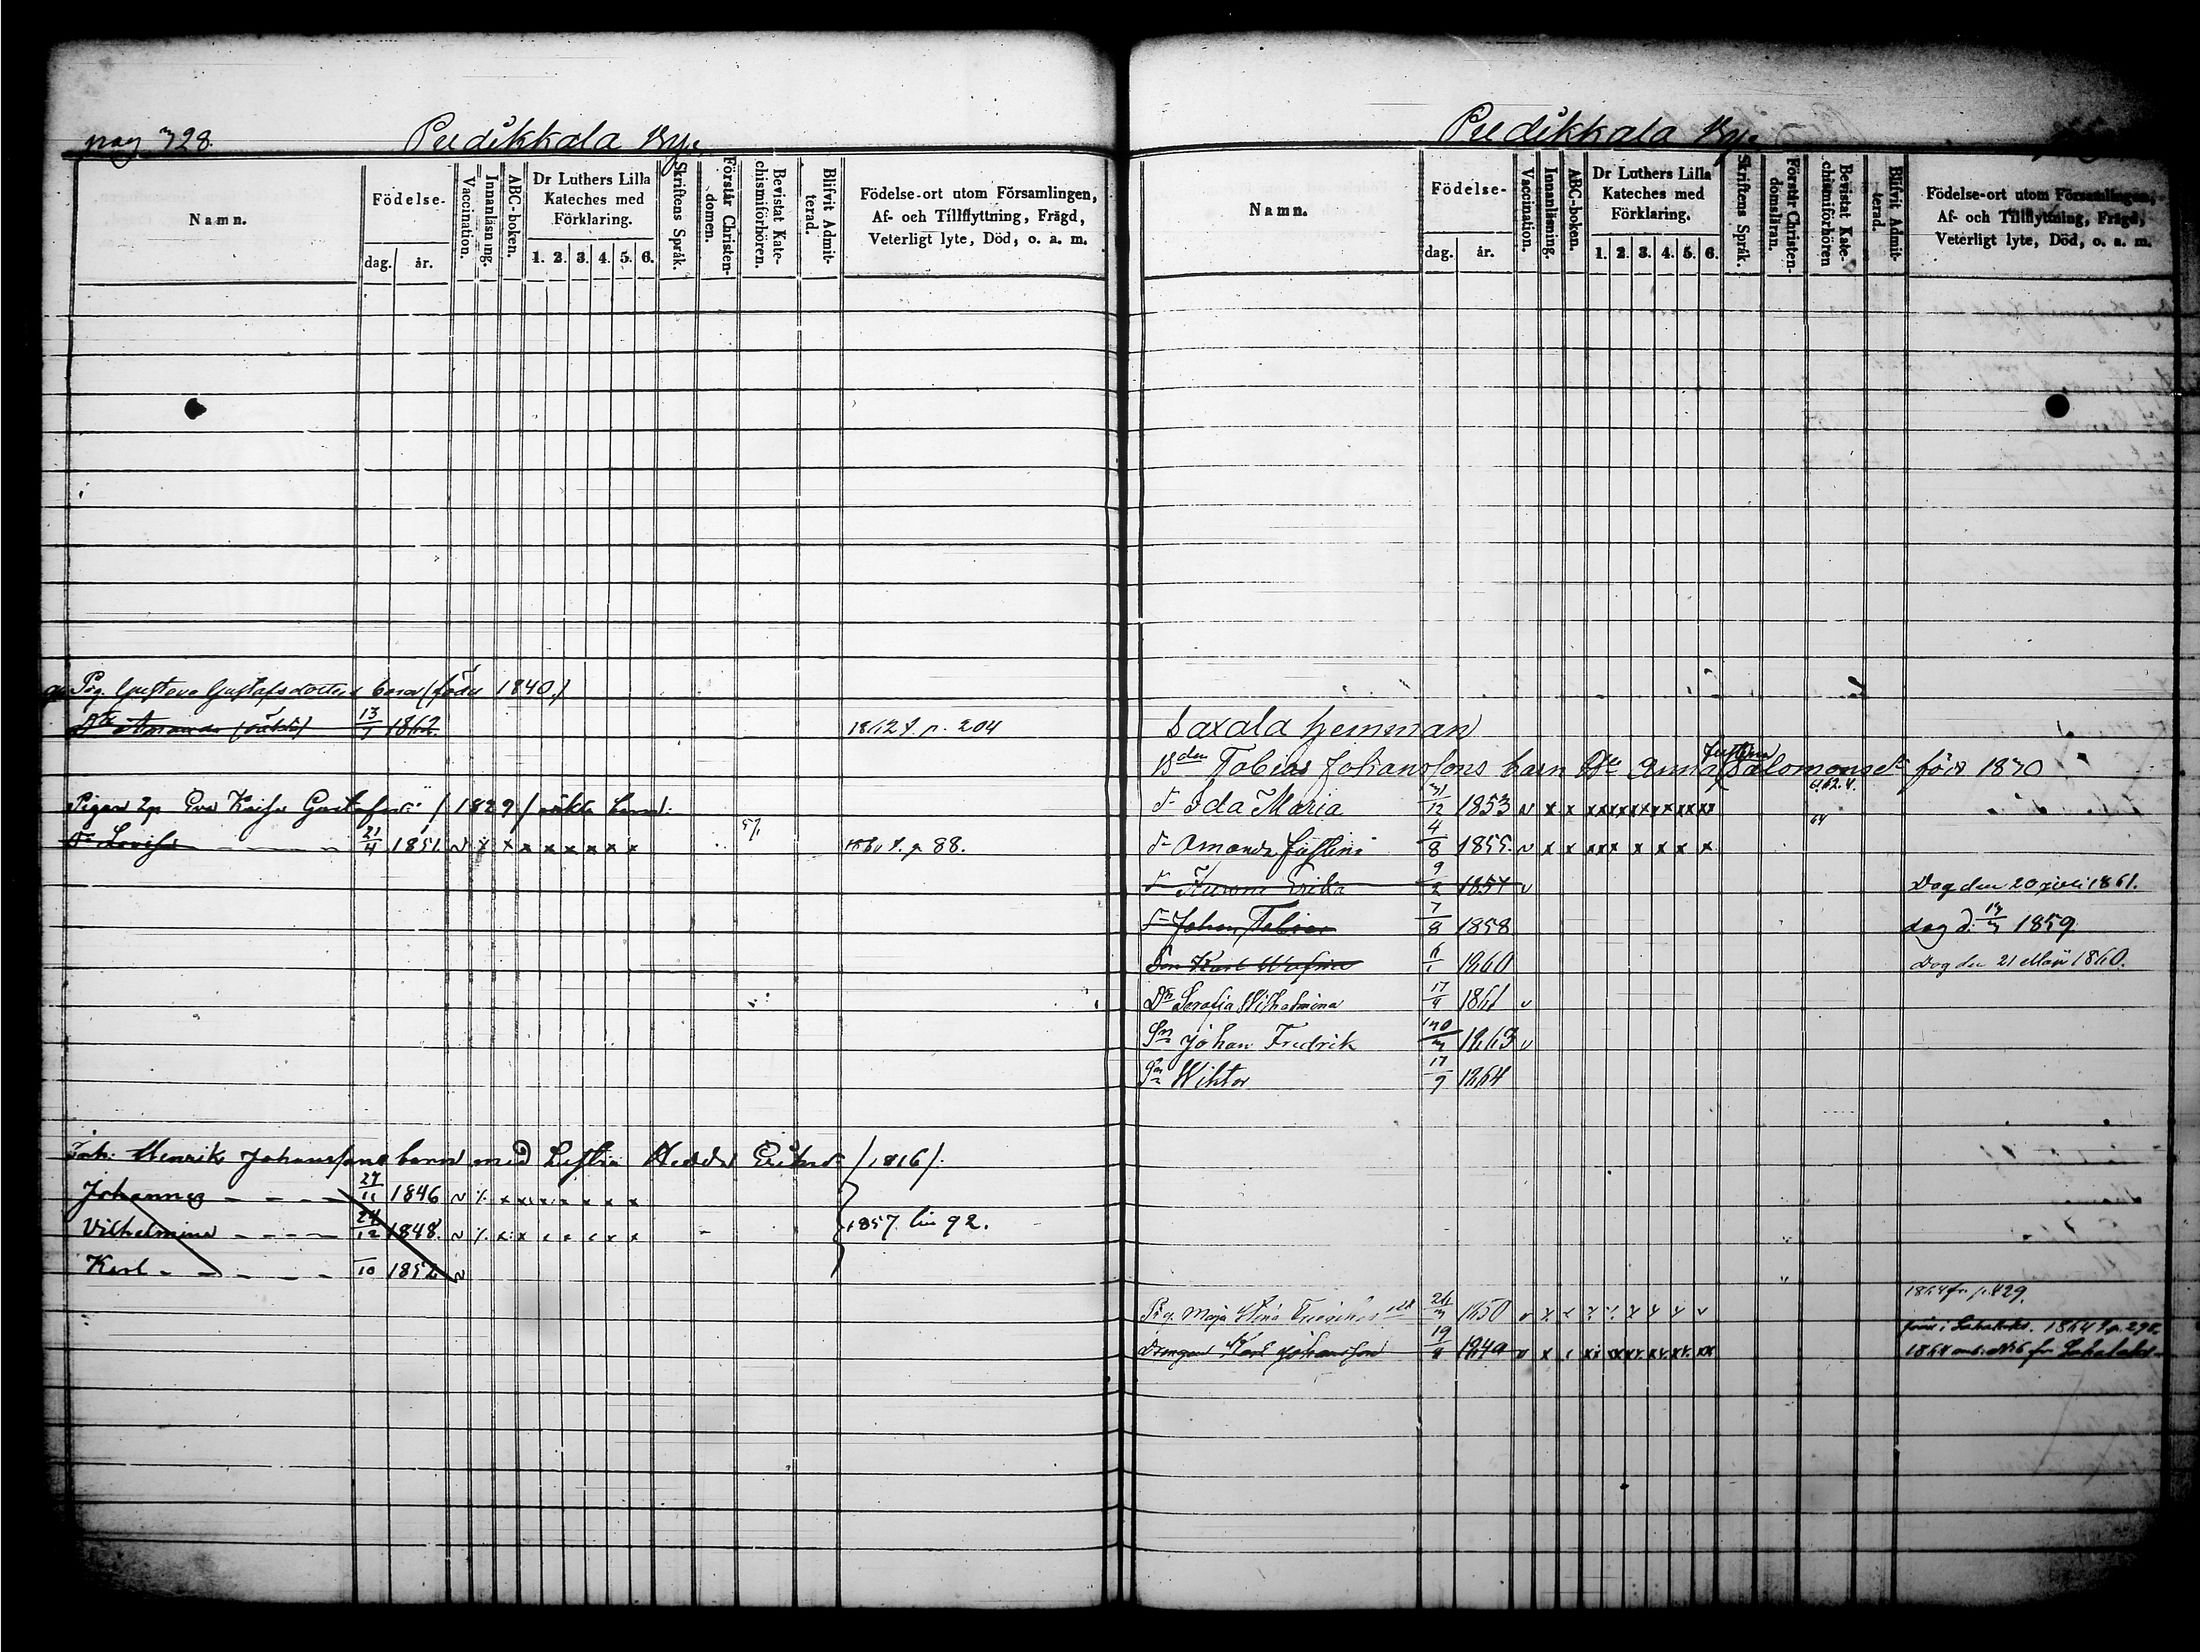 pag 328.
Predikkala By.
Namn.
Födelse-
dag. år.
Vaccination.
Innanläsning.
ABC-boken.
Dr Luthers Lilla Kateches med Förklaring.
1. 2. 3. 4. 5. 6.
Skriftens Språk.
Förstår Christen-domen.
Bevistat Kate-chismiförhören.
Blifvit Admit-terad.
Födelse-ort utom Församlingen,
Af- och Tillflyttning, Frägd,
Veterligt lyte, Död, o. a. m.
Pig. Gustava Gustafsdotters barn (född 1840.)
Dr Amanda (oäkta) 13/1 1862. 1862 t. p. 204
Pigan Eva Kaisa Gustafsdr /1829/ oäkta barn:
Dr Lovisa 21/4 1851. v x x x x x x x x 57. t. p 88.
Inh. Henrik Johanssons barn med Hedda Eriksdr /1816/.
Johannes 27/11 1846 v
Vilhelmina 24/12 1848. v 1857. 92.
Karl /10 1852 v
Predikkala By.
Namn.
Födelse-
dag. år.
Vaccination.
Innanläsning.
ABC-boken.
Dr Luthers Lilla Kateches med Förklaring.
1. 2. 3. 4. 5. 6.
Skriftens Språk.
Förstår Christen-domsläran.
Bevistat Kate-chismiförhören
Blifvit Admit-terad.
Födelse-ort utom Församlingen,
Af- och Tillflyttning, Frägd,
Veterligt lyte, Död, o. a. m.
Saxala hemman
Bden Tobias Johanssons barn Anna Justina Salomonsdr född 1830
dr Ida Maria 31/12 1853 v x x
dr Amanda Justina 4/8 1855. v x x 64
dr Erika 9/2 1857 v Dog den 20 1861.
Sn Johan Tobias 7/8 1858 dog d. 1859.
Son Karl 6/1 1860 Dog den 21 Maji 1860.
Dr Serafia Wilhelmina 17/4 1861 v
Sn Johan Fredrik 30/3 1863 v
Sn Wiktor 17/9 1864
1864 fr. p. 429.
Pig. Maja Stina 26/3 1850
född i 1864 t p. 298.
Drengen Karl Johansson 19/4 1849 v 1864 fr